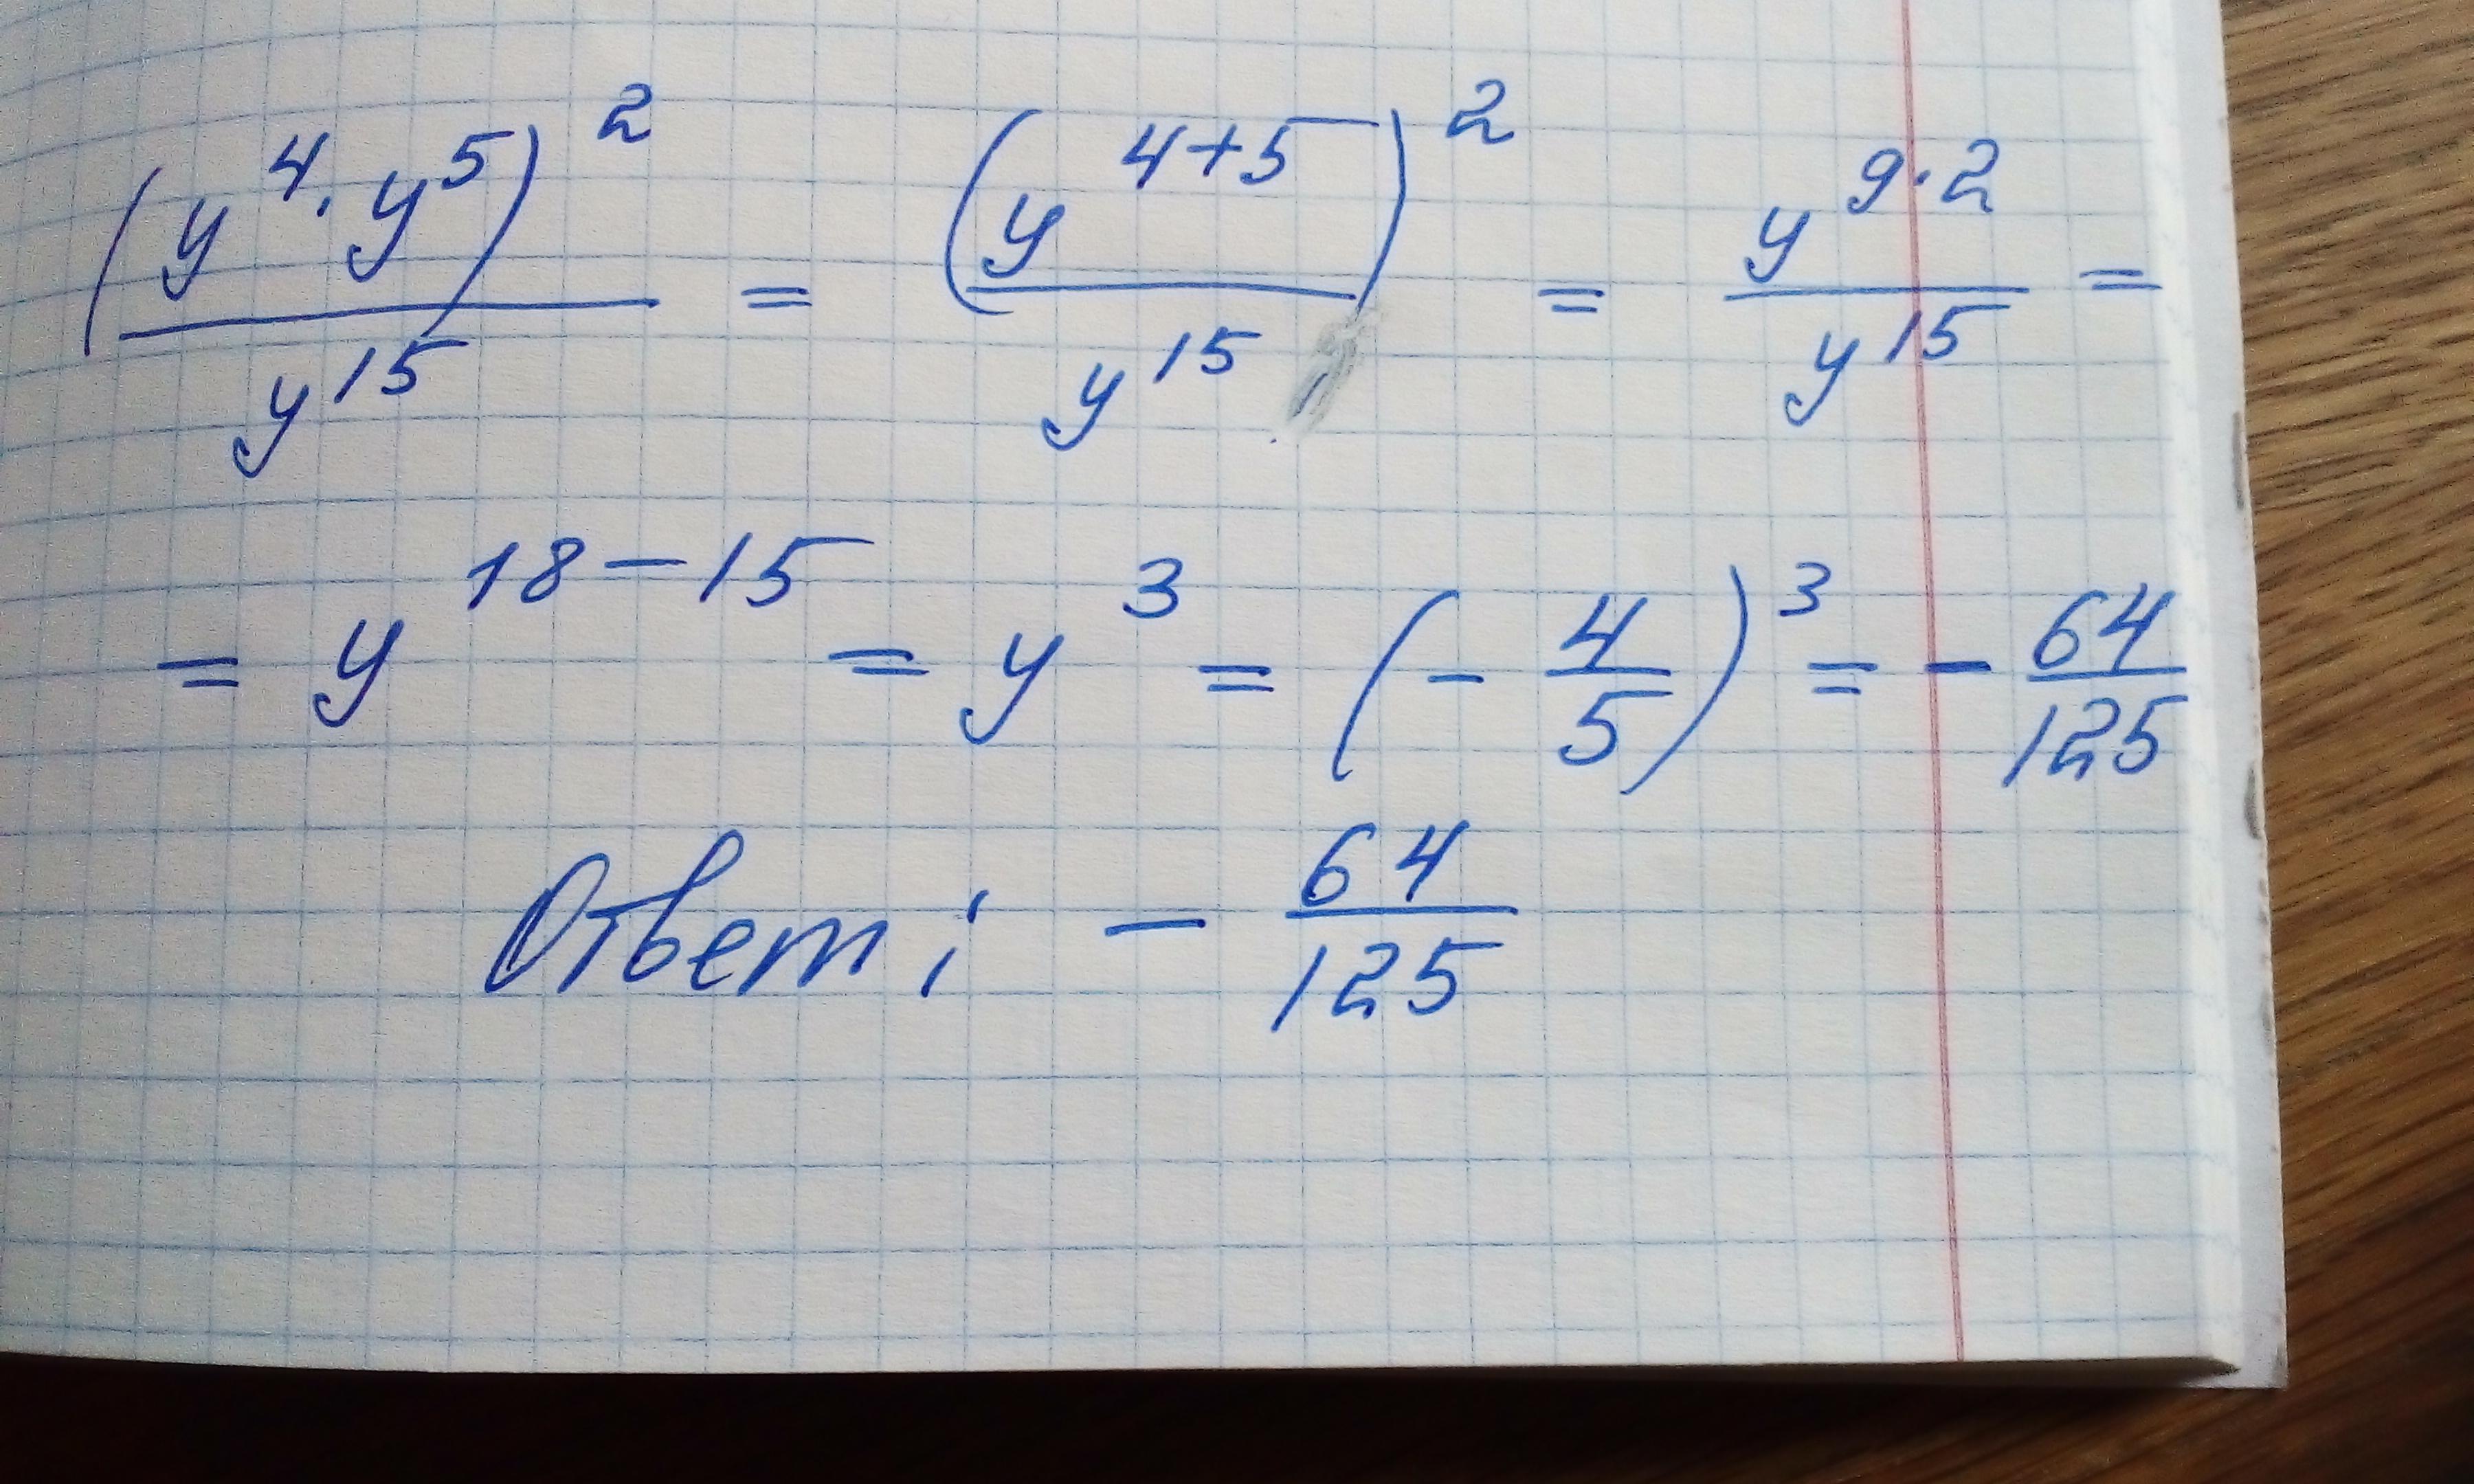 (y⁴·y⁵)²/y¹⁵ = (y⁴⁺⁵)²/y¹⁵ = y⁹·²/y¹⁵ =
= y¹⁸⁻¹⁵ = y³ = (-4/5)³ = -64/125
Ответ: -64/125